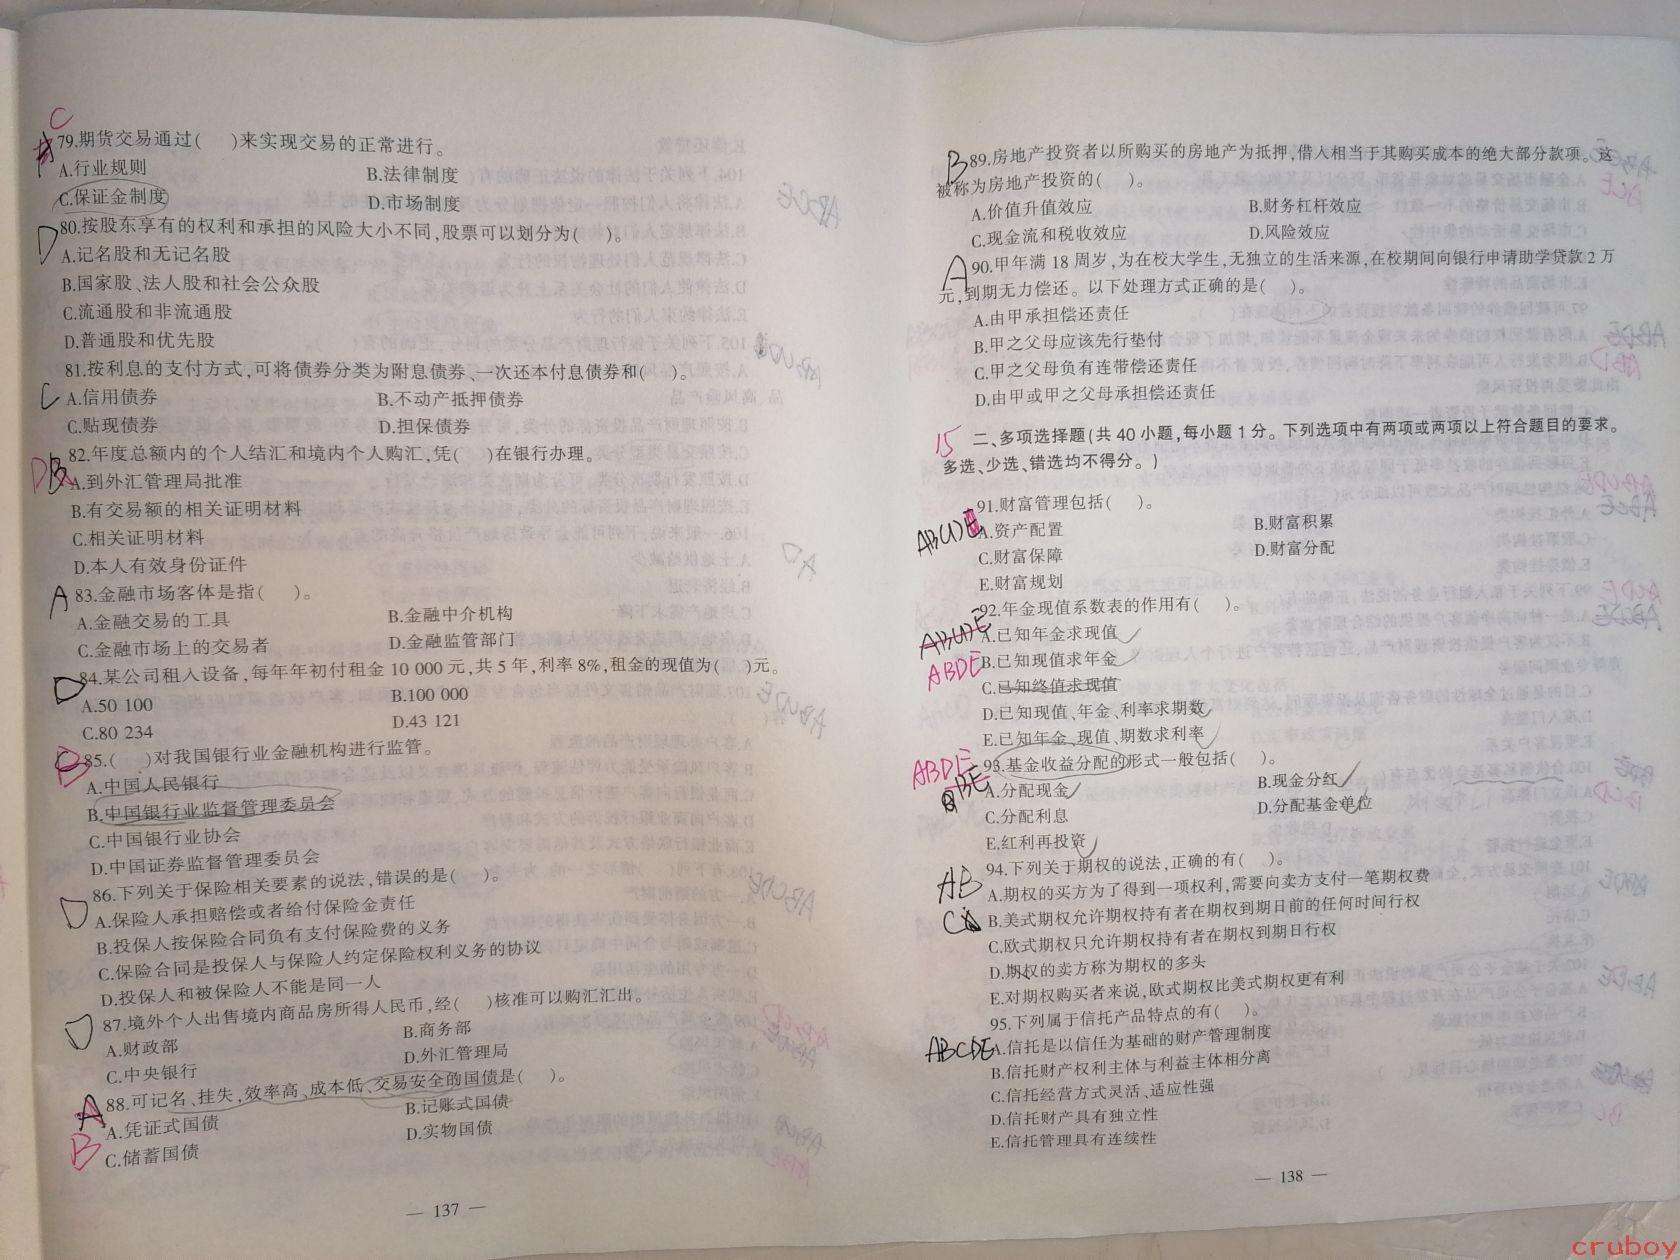 C
79.期货交易通过(　)来实现交易的正常进行。
A.行业规则　B.法律制度
C.保证金制度　D.市场制度
D 80.按股东享有的权利和承担的风险大小不同,股票可以划分为(　)。
A.记名股和无记名股
B.国家股、法人股和社会公众股
C.流通股和非流通股
D.普通股和优先股
81.按利息的支付方式,可将债券分类为附息债券、一次还本付息债券和(　)。
C A.信用债券　B.不动产抵押债券
C.贴现债券　D.担保债券
82.年度总额内的个人结汇和境内个人购汇,凭(　)在银行办理。
D B A.到外汇管理局批准
B.有交易额的相关证明材料
C.相关证明材料
D.本人有效身份证件
A 83.金融市场客体是指(　)。
A.金融交易的工具　B.金融中介机构
C.金融市场上的交易者　D.金融监管部门
D 84.某公司租入设备,每年年初付租金 10 000 元,共 5 年,利率 8%,租金的现值为(　)元。
A.50 100　B.100 000
C.80 234　D.43 121
B 85.(　)对我国银行业金融机构进行监管。
A.中国人民银行
B.中国银行业监督管理委员会
C.中国银行业协会
D.中国证券监督管理委员会
D 86.下列关于保险相关要素的说法,错误的是(　)。
A.保险人承担赔偿或者给付保险金责任
B.投保人按保险合同负有支付保险费的义务
C.保险合同是投保人与保险人约定保险权利义务的协议
D.投保人和被保险人不能是同一人
D 87.境外个人出售境内商品房所得人民币,经(　)核准可以购汇汇出。
A.财政部　B.商务部
C.中央银行　D.外汇管理局
A 88.可记名、挂失,效率高、成本低、交易安全的国债是(　)。
A.凭证式国债　B.记账式国债
B C.储蓄国债　D.实物国债
— 137 —
B 89.房地产投资者以所购买的房地产为抵押,借人相当于其购买成本的绝大部分款项。这
被称为房地产投资的(　)。
A.价值升值效应　B.财务杠杆效应
C.现金流和税收效应　D.风险效应
A 90.甲年满 18 周岁,为在校大学生,无独立的生活来源,在校期间向银行申请助学贷款 2 万
元,到期无力偿还。以下处理方式正确的是(　)。
A.由甲承担偿还责任
B.甲之父母应该先行垫付
C.甲之父母负有连带偿还责任
D.由甲或甲之父母承担偿还责任
15 二、多项选择题(共 40 小题,每小题 1 分。下列选项中有两项或两项以上符合题目的要求。
多选、少选、错选均不得分。)
91.财富管理包括(　)。
A.资产配置　B.财富积累
C.财富保障　D.财富分配
E.财富规划
92.年金现值系数表的作用有(　)。
A.已知年金求现值
ABDE B.已知现值求年金
C.已知终值求现值
D.已知现值、年金、利率求期数
E.已知年金、现值、期数求利率
ABDE 93.基金收益分配的形式一般包括(　)。
A.分配现金　B.现金分红
C.分配利息　D.分配基金单位
E.红利再投资
94.下列关于期权的说法,正确的有(　)。
AB A.期权的买方为了得到一项权利,需要向卖方支付一笔期权费
C B.美式期权允许期权持有者在期权到期日前的任何时间行权
C.欧式期权只允许期权持有者在期权到期日行权
D.期权的卖方称为期权的多头
E.对期权购买者来说,欧式期权比美式期权更有利
95.下列属于信托产品特点的有(　)。
ABCDE A.信托是以信任为基础的财产管理制度
B.信托财产权利主体与利益主体相分离
C.信托经营方式灵活、适应性强
D.信托财产具有独立性
E.信托管理具有连续性
— 138 —
cruboy